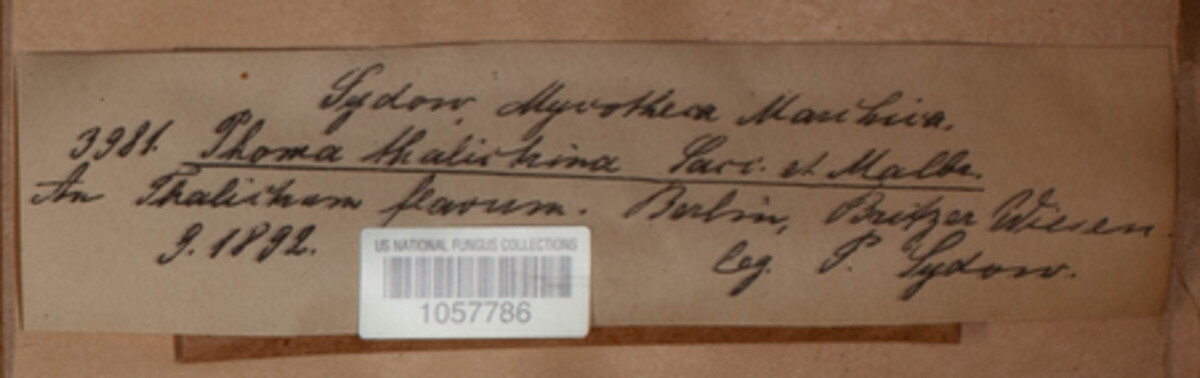 Sydow, Mycotheca Marchica.
3981. Phoma thalictrina Sacc. et Malbr.
An Thalictrum flavum. Berlin, Britzer Wiesen.
9. 1892. leg. P. Sydow.
US NATIONAL FUNGUS COLLECTIONS
1057786